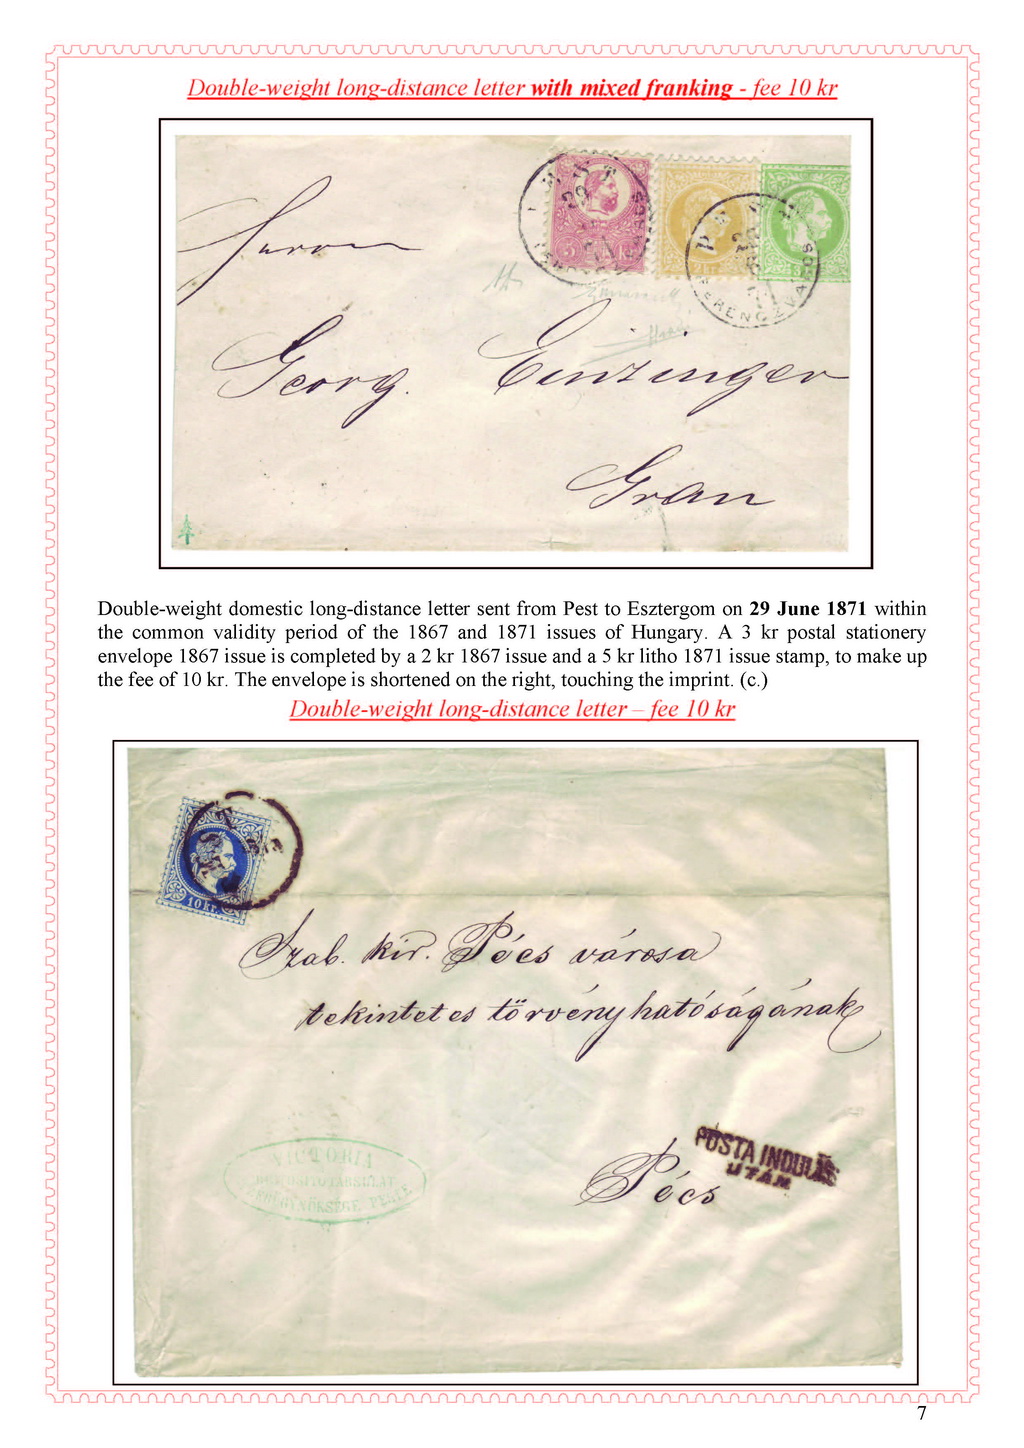 Double-weight long-distance letter with mixed franking - fee 10 kr
FERENCZVAROS
Herrn
Georg. Einzinger
Gran
Double-weight domestic long-distance letter sent from Pest to Esztergom on 29 June 1871 within
the common validity period of the 1867 and 1871 issues of Hungary. A 3 kr postal stationery
envelope 1867 issue is completed by a 2 kr 1867 issue and a 5 kr litho 1871 issue stamp, to make up
the fee of 10 kr. The envelope is shortened on the right, touching the imprint. (c.)
Double-weight long-distance letter – fee 10 kr
10 kr.
Szab. kir. Pécs városa
tekintetes törvényhatóságának
POSTA INDULÁS
UTÁN
Pécs
VICTORIA
7